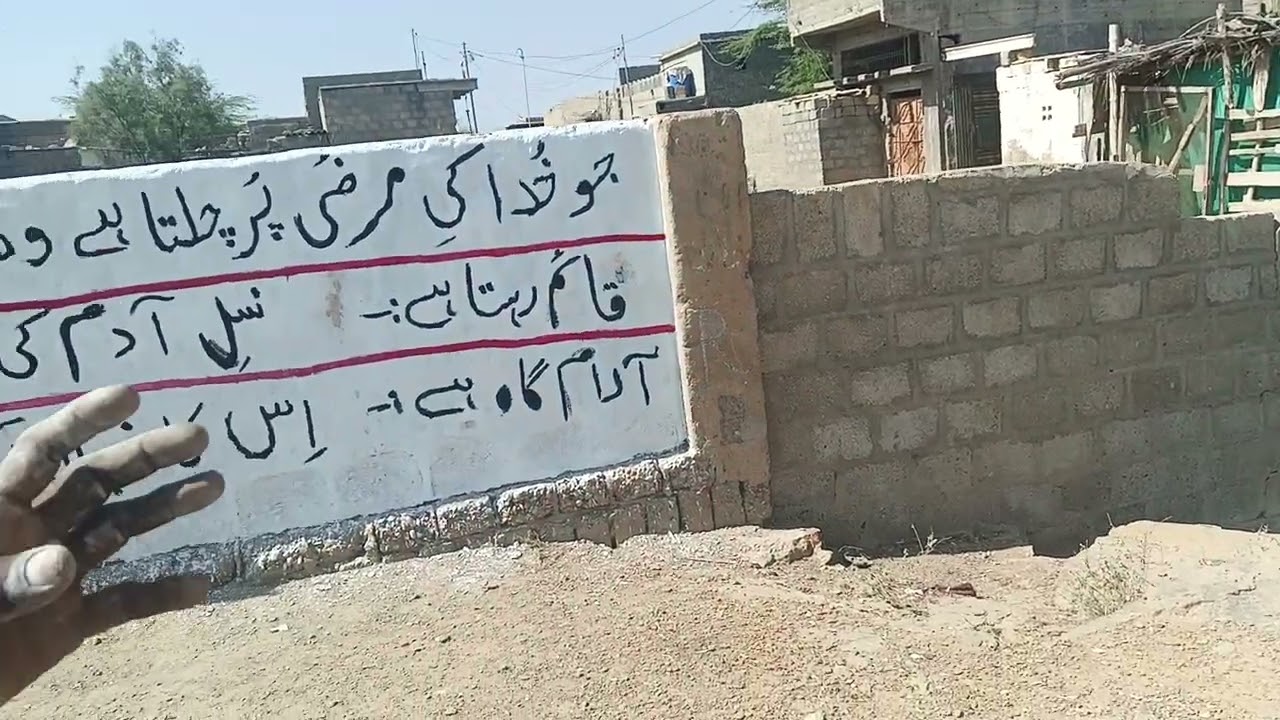 جو خُدا کیِ مرضیُ پُر چلتا ہے وہ
قائم رہتا ہے :۔ نسلِ آدم کی
آرام گاہ ہے :۔ اِس کا